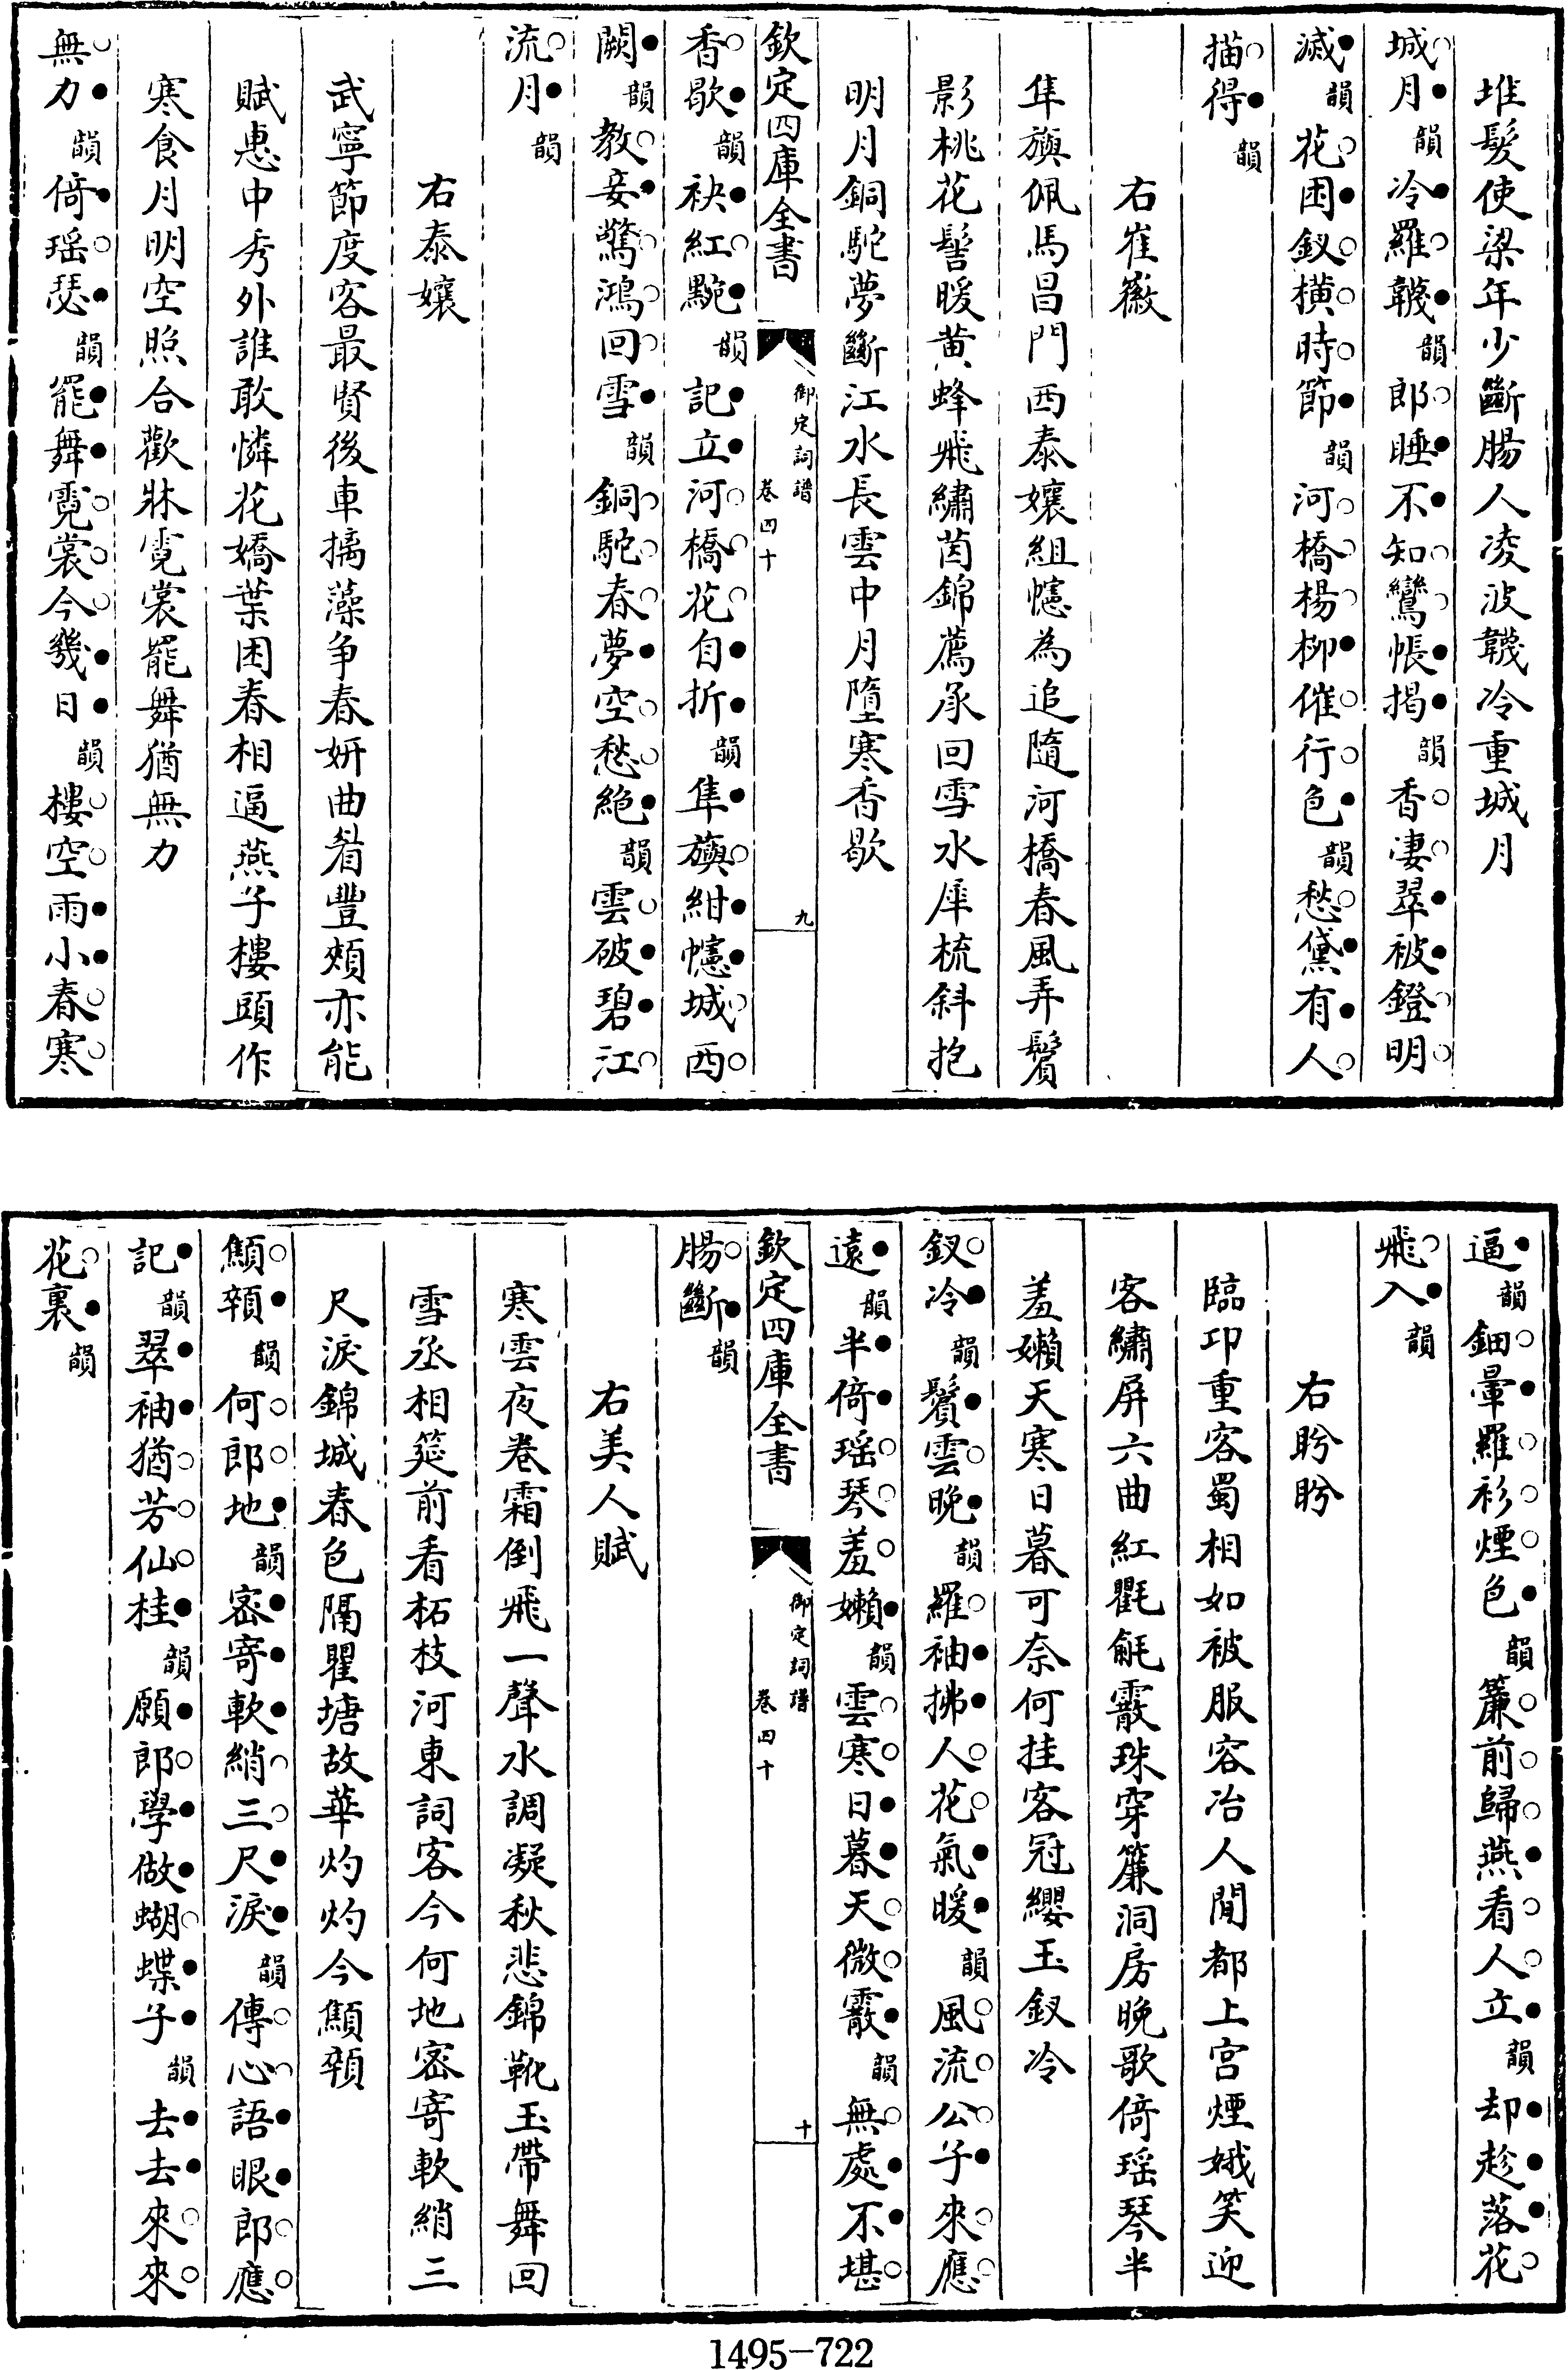 堆髮使梁年少斷腸人凌波韈冷重城月
城月韻冷羅韈韻郎睡不知鸞帳揭韻香凄翠被鐙明
滅韻花困釵橫時節韻河橋楊柳催行色韻愁黛有人
描得韻
右崔徽
隼旟佩馬昌門西泰孃組幰為追隨河橋春風弄鬢
影桃花髻暖黄蜂飛繡茵錦薦承回雪水犀梳斜抱
明月銅駝夢斷江水長雲中月墮寒香歇
欽定四庫全書
御定詞譜
卷四十
九
香歇韻袂紅黦韻記立河橋花自折韻隼旟紺幰城西
闕韻教妾驚鴻回雪韻銅駝春夢空愁絶韻雲破碧江
流月韻
右泰孃
武寧節度客最賢後車摛藻争春妍曲眉豐頰亦能
賦惠中秀外誰敢憐花嬌葉困春相逼燕子樓頭作
寒食月明空照合歡牀霓裳罷舞猶無力
無力韻倚瑶瑟韻罷舞霓裳今幾日韻樓空雨小春寒
逼韻鈿暈羅衫煙色韻簾前歸燕看人立韻却趁落花
飛入韻
右盼盼
臨卭重客蜀相如被服容冶人閒都上宫煙娥笑迎
客繡屏六曲紅氍毹霰珠穿簾洞房晚歌倚瑶琴半
羞嬾天寒日暮可奈何挂客冠纓玉釵冷
釵冷韻鬢雲晚韻羅袖拂人花氣暖韻風流公子來應
遠韻半倚瑶琴羞嬾韻雲寒日暮天微霰韻無處不堪
欽定四庫全書
御定詞譜
卷四十
十
腸斷韻
右美人賦
寒雲夜卷霜倒飛一聲水調凝秋悲錦靴玉帶舞回
雪丞相筵前看柘枝河東詞客今何地宻寄軟綃三
尺淚錦城春色隔瞿塘故華灼灼今顦顇
顦顇韻何郎地韻宻寄軟綃三尺淚韻傳心語眼郎應
記韻翠袖猶芳仙桂韻願郎學做蝴蝶子韻去去來來
花裏韻
1495-722